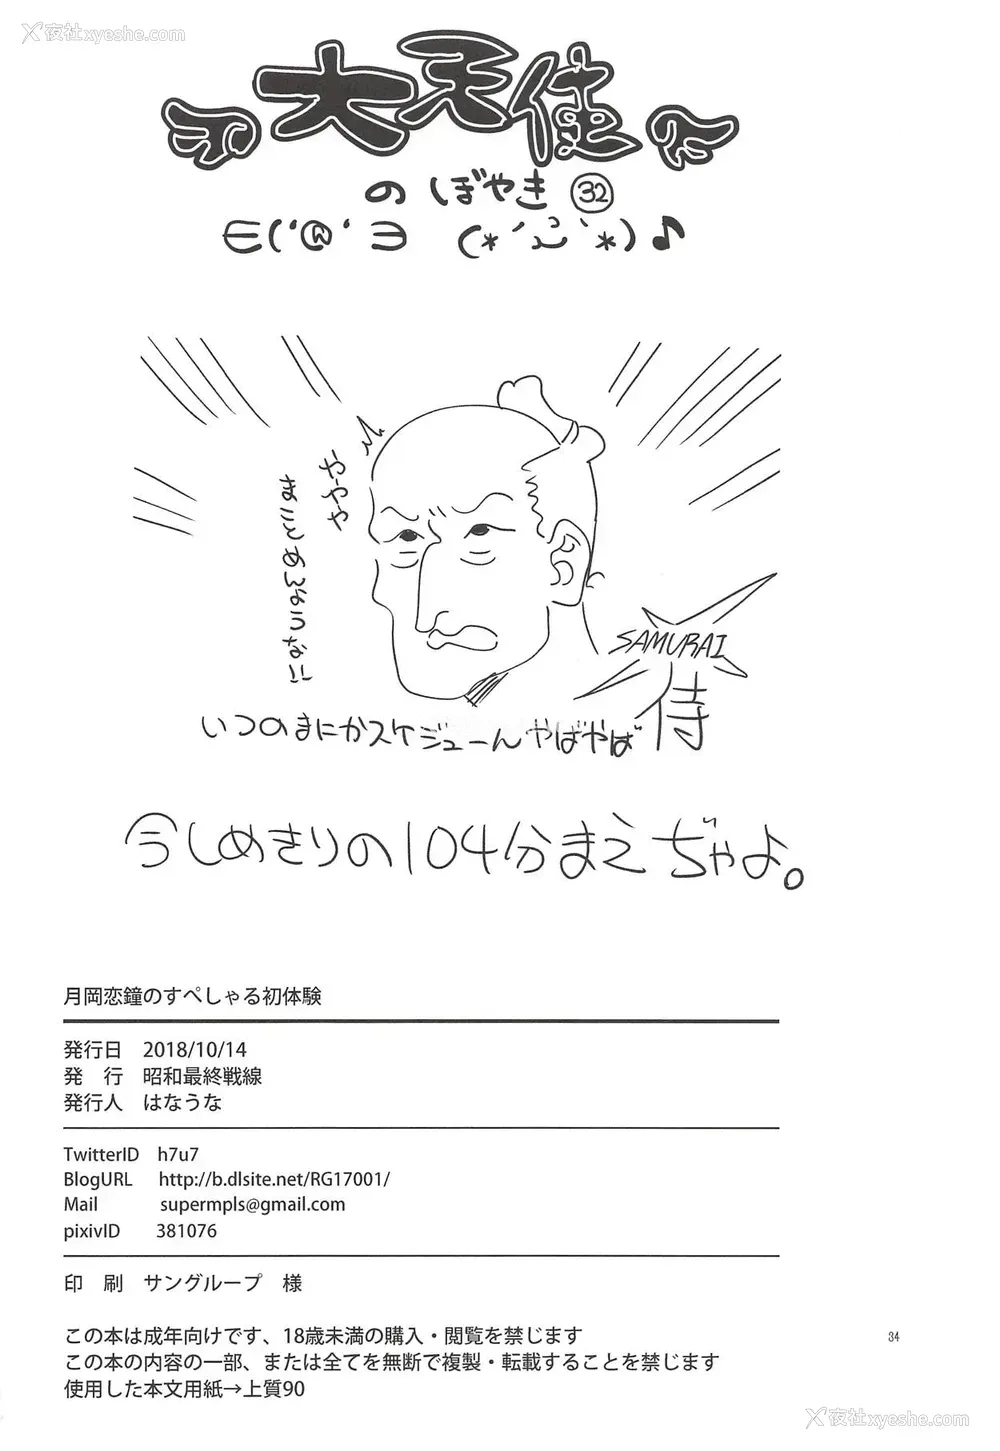 夜社xyeshe.com
大天使
のぼやき ㉜
∈('@'∋ (*´ω`*)♪
ややや
まことめんような!!
SAMURAI
侍
いつのまにかスケジューんやばやば
今しめきりの104分まえぢゃよ。
月岡恋鐘のすぺしゃる初体験
発行日 2018/10/14
発 行 昭和最終戦線
発行人 はなうな
TwitterID h7u7
BlogURL http://b.dlsite.net/RG17001/
Mail supermpls@gmail.com
pixivID 381076
印 刷 サングループ 様
この本は成年向けです、18歳未満の購入・閲覧を禁じます
34
この本の内容の一部、または全てを無断で複製・転載することを禁じます
使用した本文用紙→上質90
夜社xyeshe.com